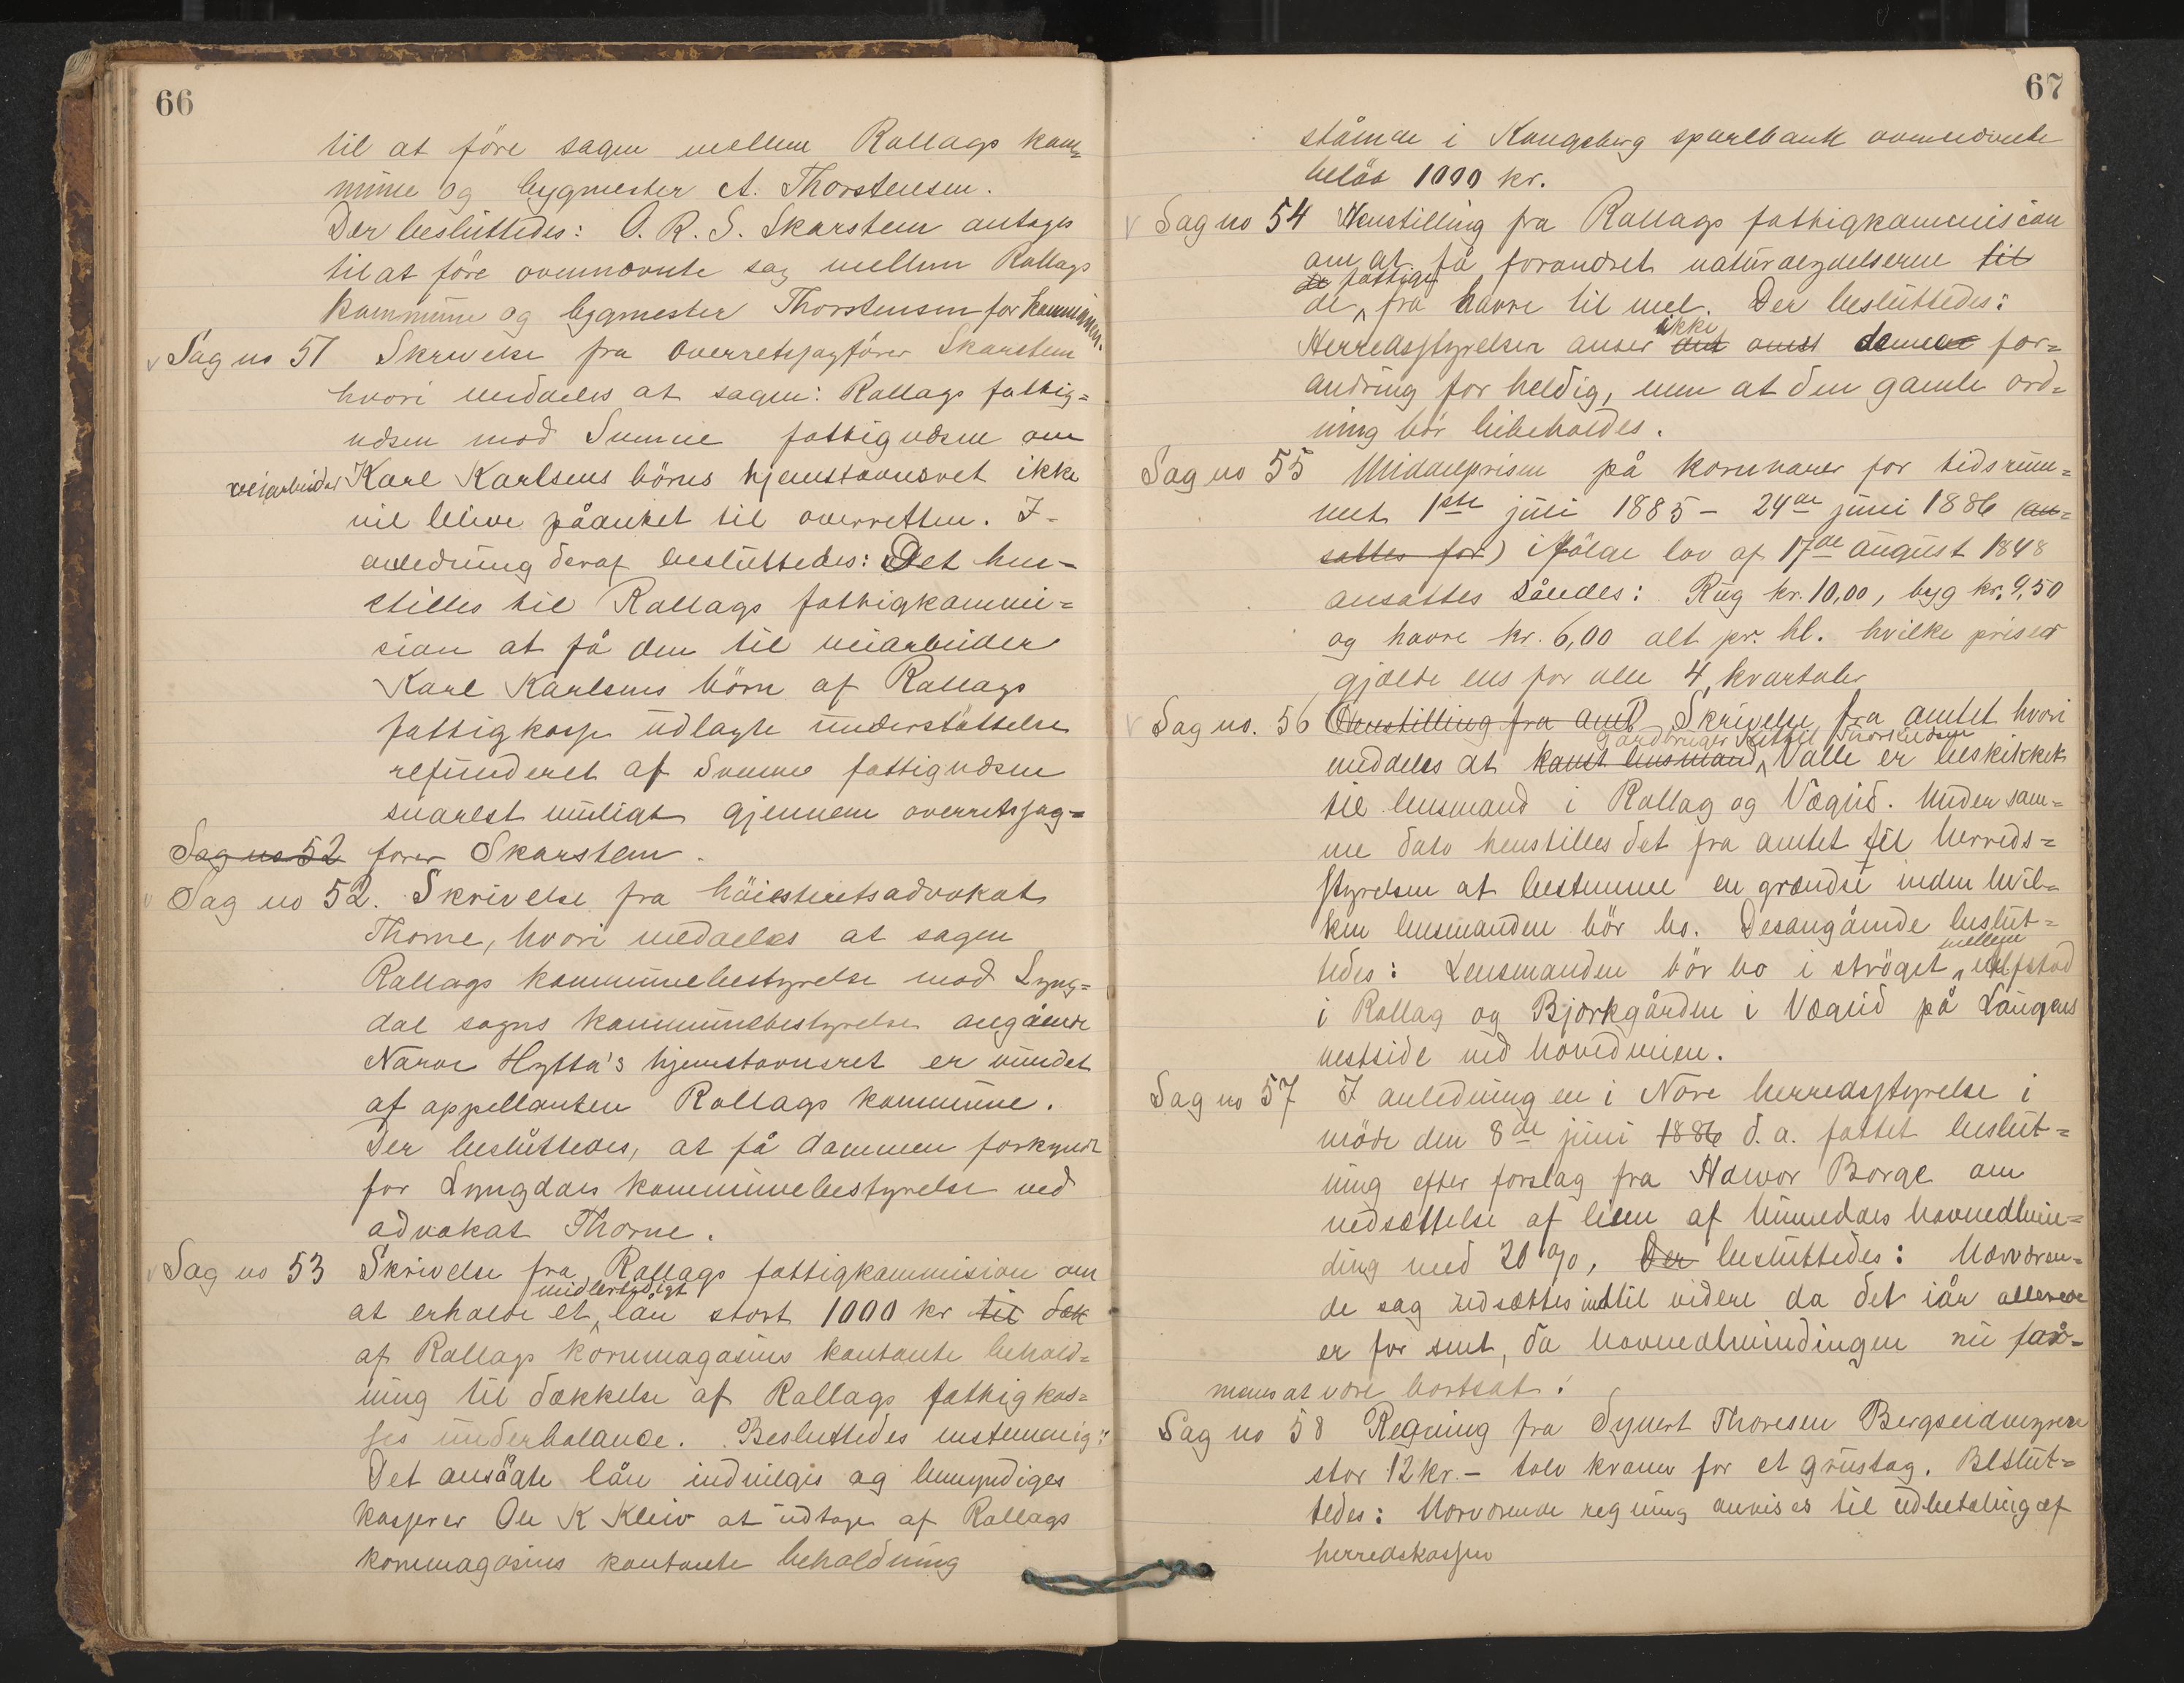 66
til at före sagen mellem Rollags kom=
mune og bygmester A. Thorstensen.
Der besluttedes: O. R. S. Skarstein antages
til at före ovennævnte sag mellem Rollags
kommune og bygmester Thorstensen for kommunen.
Sag no 51 Skrivelse fra overretssagförer Skarstein
hvori meddeles at sagen: Rollags fattig=
væsen mod Svenne fattigvæsen om
veiarbeider Karl Karlsens börns hjemstavnsret ikke
vil blive påanket til overretten. I
anledning deraf besluttedes: Det hen=
stilles til Rollags fattigkommi=
sion at få den til veiarbeider
Karl Karlsens börn af Rollags
fattigkasse udlagte understöttelse
refunderet af Svenne fattigvæsen
snarest muligt gjennem overretssag=
Sag no 52 förer Skarstein.
Sag no 52. Skrivelse fra höiesteretsadvokat
Thorne, hvori meddeles at sagen
Rollags kommunebestyrelse mod Lyng=
dal sogns kommunebestyrelse angående
Narve Hytta's hjemstavnsret er vundet
af appellanten Rollags kommune.
Der besluttedes, at få dommen forkyndt
for Lyngdals kommunebestyrelse ved
advokat Thorne.
Sag no 53 Skrivelse fra Rollags fattigkommision om
midlertidigt
at erholde et lån stort 1000 kr til dæk
af Rollags kornmagasins kontante behold=
ning til dækkelse af Rollags fattigkas=
ses underbalance. Besluttedes enstemmig:
Det ansögte lån indvilges og bemyndiges
kasserer Ole K Kleiv at udtage af Rollags
kornmagasins kontante beholdning
67
stående i Kongsberg sparebank ovennævnte
belöb 1000 kr.
Sag no 54 Henstilling fra Rollags fattigkommision
om at få forandret naturalydelserne til
de fattige
de fra havre til mel. Der besluttedes:
ikke
Herredsstyrelsen anser det denne for=
andring for heldig, men at den gamle ord=
ning bör bibeholdes.
Sag no 55 Middelprisen på kornvarer for tidsrum=
met 1ste juli 1885 - 24de juni 1886 (an=
sattes for) ifölge lov af 17de august 1848
ansattes således: Rug kr. 10,00, byg kr. 9,50
og havre kr. 6,00 alt pr. hl. hvilke priser
gjælde ens for alle 4 kvartaler
Sag no. 56 (Henstilling fra amt) Skrivelse fra amtet hvori
gårdbruger Kittil Thorkildsen
meddeles at const lensmand Valle er beskikket
til lensmand i Rollag og Væglid. Under sam=
me dato henstilles det fra amtet til herreds=
styrelsen at bestemme en grændse inden hvil=
ken lensmanden bör bo. Desangående beslut=
mellem
tedes: Lensmanden bör bo i ströget Ulfstad
i Rollag og Bjorkgården i Væglid på Laugens
vestside ved hovedveien.
Sag no 57 I anledning en i Nore herredsstyrelse i
möde den 8de juni 1886 d. a. fattet beslut=
ning efter forslag fra Halvor Borge om
nedsættelse af leien af Numedals havnealmin=
ding med 20 %, Der besluttedes: Nærværen=
de sag udsættes indtil videre da det iår allerede
er for sent, da havnealmindingen nu for=
menes at være bortsat.
Sag no 58 Regning fra Synert Thoresen Bergseidmyrene
stor 12 kr. - tolv kroner for et grustag. Beslut=
tedes: Nærværende regning anvises til udbetaling af
herredskassen